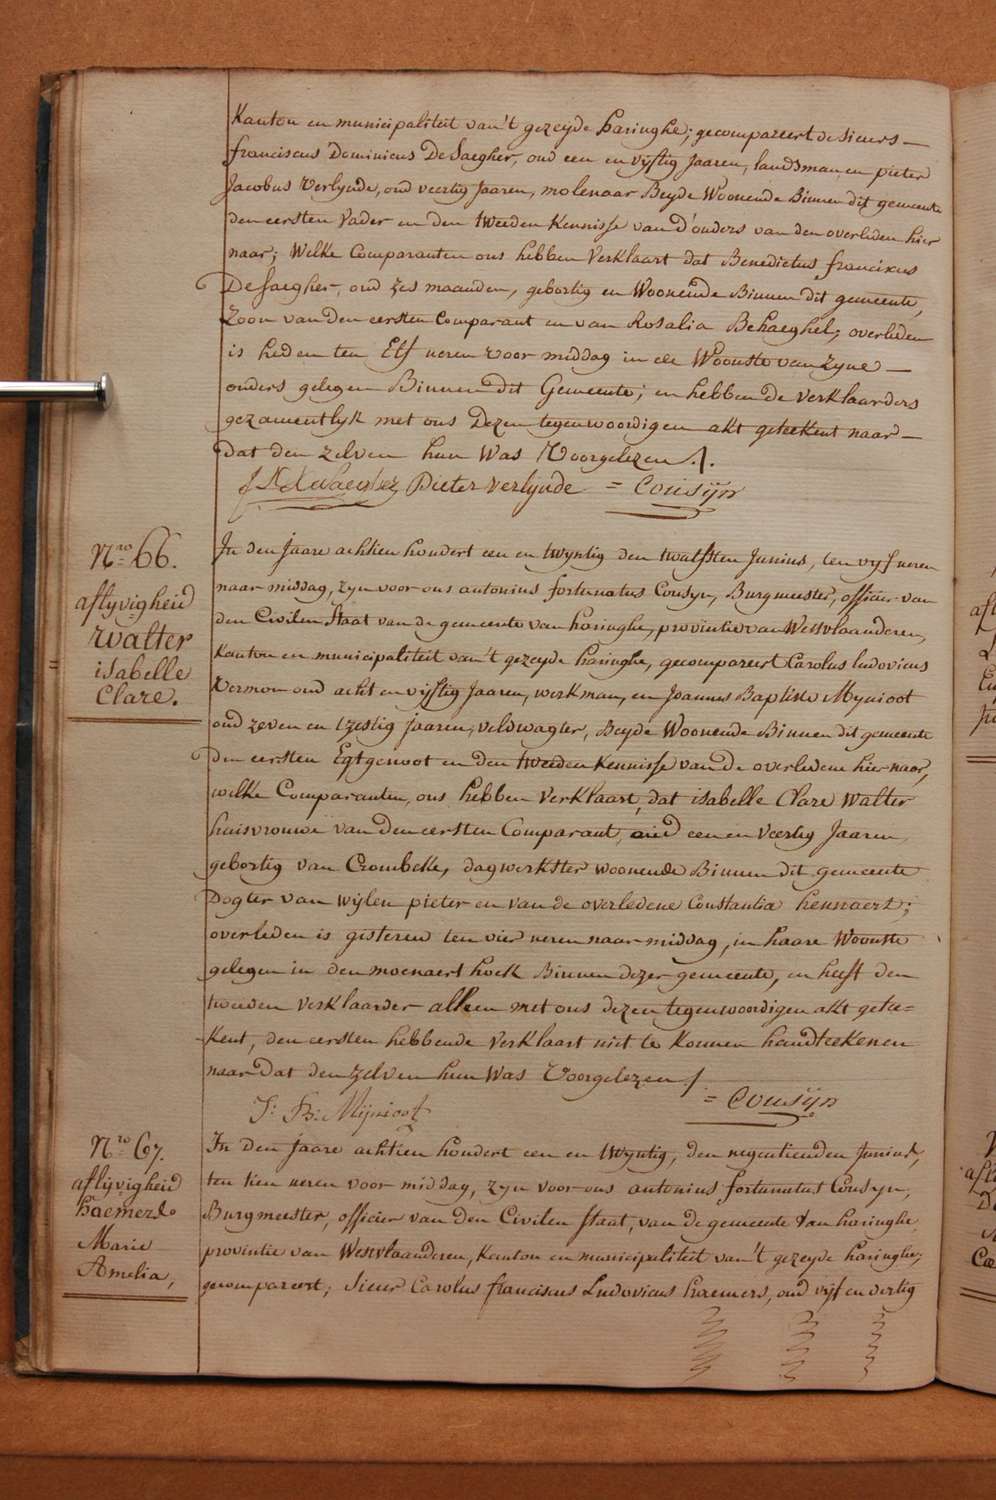 Kanton en municipaliteit van't gezeyde haringhe; gecompareert de sieurs —
franciscus Dominicus De Saegher, oud een en vyftig Jaaren, landsman, en pieter
Jacobus Verlynde, oud veertig Jaaren, molenaar Beyde Woonende Binnen dit gemeente
den eersten Vader en den tweeden Kennisse van d'ouders van den overleden hier
naar; Welke Comparanten ons hebben Verklaart dat Benedictus francixus
De Saegher, oud zes maanden, gebortig en Woonende Binnen dit gemeente,
Zoon van den eersten Comparant en van Rosalia Behaeghel; overleden
is heden ten Elf ueren voor middag in de Woonste van Zyne —
ouders gelegen Binnen dit Gemeente; en hebben de verklaarders
gezamentlyk met ons Dezen tegenwoordigen akt geteekent naar —
dat den zelven hun Was Voorgelezen ./.
Pieter verlijnde = Cousijn
Nro 66.
aflijvigheid
Walter
isabelle
Clare.
In den Jaare achtien hondert een en twyntig den twalfsten Junius, ten vyf ueren
naar middag, zyn voor ons antonius fortunatus Cousyn, Burgmeester, officier van
den Civilen Staat van de gemeente van haringhe, provintie van Westvlaanderen,
Kanton en municipaliteit van't gezeyde haringhe, gecompareert Carolus ludovicus
Vermon oud acht en vyftig Jaaren, werkman, en Joannes Baptiste Mynioot
oud zeven en tzestig jaaren, veldwagter, Beyde Woonende Binnen dit gemeente
den eersten Egtgenoot en den tweeden Kennisse van de overledene hier naar,
welke Comparanten, ons hebben Verklaart, dat isabelle Clare Walter
huisvrouwe van den eersten Comparant, oud een en Veertig Jaaren,
gebortig van Crombeke, dagwerkster woonende Binnen dit gemeente
Dogter van wijlen pieter en van de overledene Constantia hennaert;
overleden is gisteren ten vier ueren naar middag, in haare Woonste
gelegen in den moenaert hoek Binnen dezer gemeente, en heeft den
tweeden verklaarder alleen met ons dezen tegenwoordigen akt getee-
Kent, den eersten hebbende Verklaart niet te Konnen handteekenen
naar dat den zelven hun Was Voorgelezen ./.
J: B: Mijnioot = Cousijn
Nro 67.
aflijvigheid
haemers
Marie
Amelia,
In den Jaare achtien hondert een en twyntig, den negentienden Junius,
ten tien ueren voor middag, zyn voor ons antonius fortunatus Cousyn,
Burgmeester, officier van den Civilen Staat, van de gemeente Van haringhe
provintie van Westvlaanderen, Kanton en municipaliteit van't gezeyde haringhe,
gecompareert; Sieur Carolus franciscus Ludovicus haemers, oud vijf en vertig